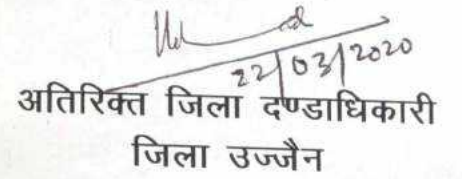 22/03/2020
अतिरिक्त जिला दण्डाधिकारी
जिला उज्जैन